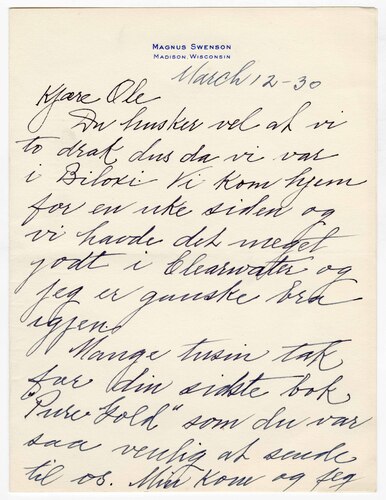 MAGNUS SWENSON
MADISON, WISCONSIN
March 12-30
Kjære Ole
Du husker vel at vi
to drak dus da vi var
i Biloxi Vi kom hjem
for en uke siden og
vi havde det meget
godt i Clearwater og
jeg er ganske bra
igjen.
Mange tusin tak
for din sidste bok
"Pure Gold" som du var
saa venlig at sende
til os. Min kone og jeg